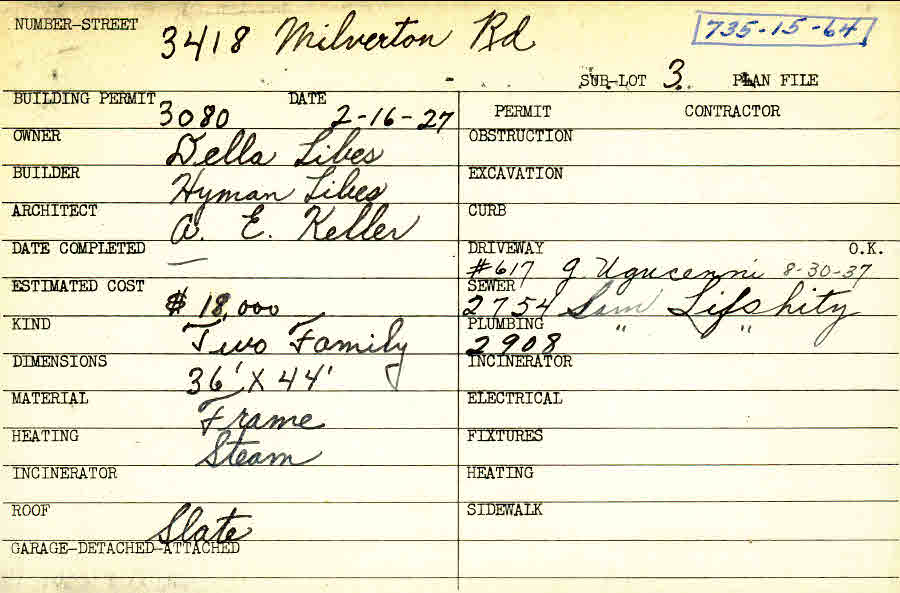 NUMBER-STREET 3418 Milverton Rd 735-15-64
SUB-LOT 3. PLAN FILE
BUILDING PERMIT 3080 DATE 2-16-27
PERMIT CONTRACTOR
OWNER Della Libes
OBSTRUCTION
BUILDER Hyman Libes
EXCAVATION
ARCHITECT A. E. Keller
CURB
DATE COMPLETED —
DRIVEWAY O.K.
#617 g. Ugucenni 8-30-37
ESTIMATED COST $18,000
SEWER
2754 Sam Lifshity
KIND Two Family
PLUMBING " "
2908
DIMENSIONS 36' X 44'
INCINERATOR
MATERIAL Frame
ELECTRICAL
HEATING Steam
FIXTURES
INCINERATOR
HEATING
ROOF Slate
SIDEWALK
GARAGE-DETACHED-ATTACHED